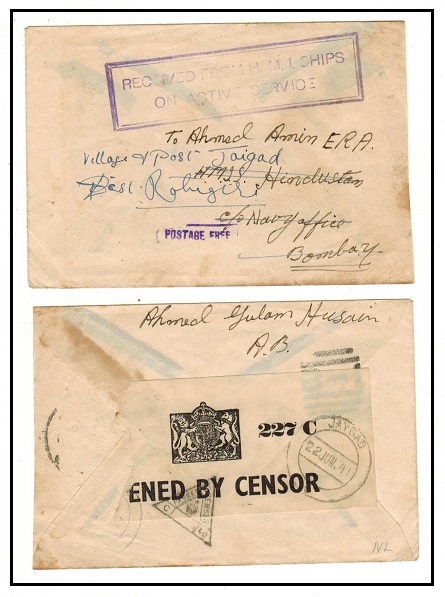 RECEIVED FROM H.M.I. SHIPS
ON ACTIVE SERVICE
To Ahmed Amin E.R.A.
Village & Post Jaigad
HMIS Hindustan
Dest. Ratnagiri
c/o Navy office
POSTAGE FREE
Bombay
Ahmed Gulam Husain
A.B.
227 C
JAYGAD
22 JUN. 41
ENED BY CENSOR
NL